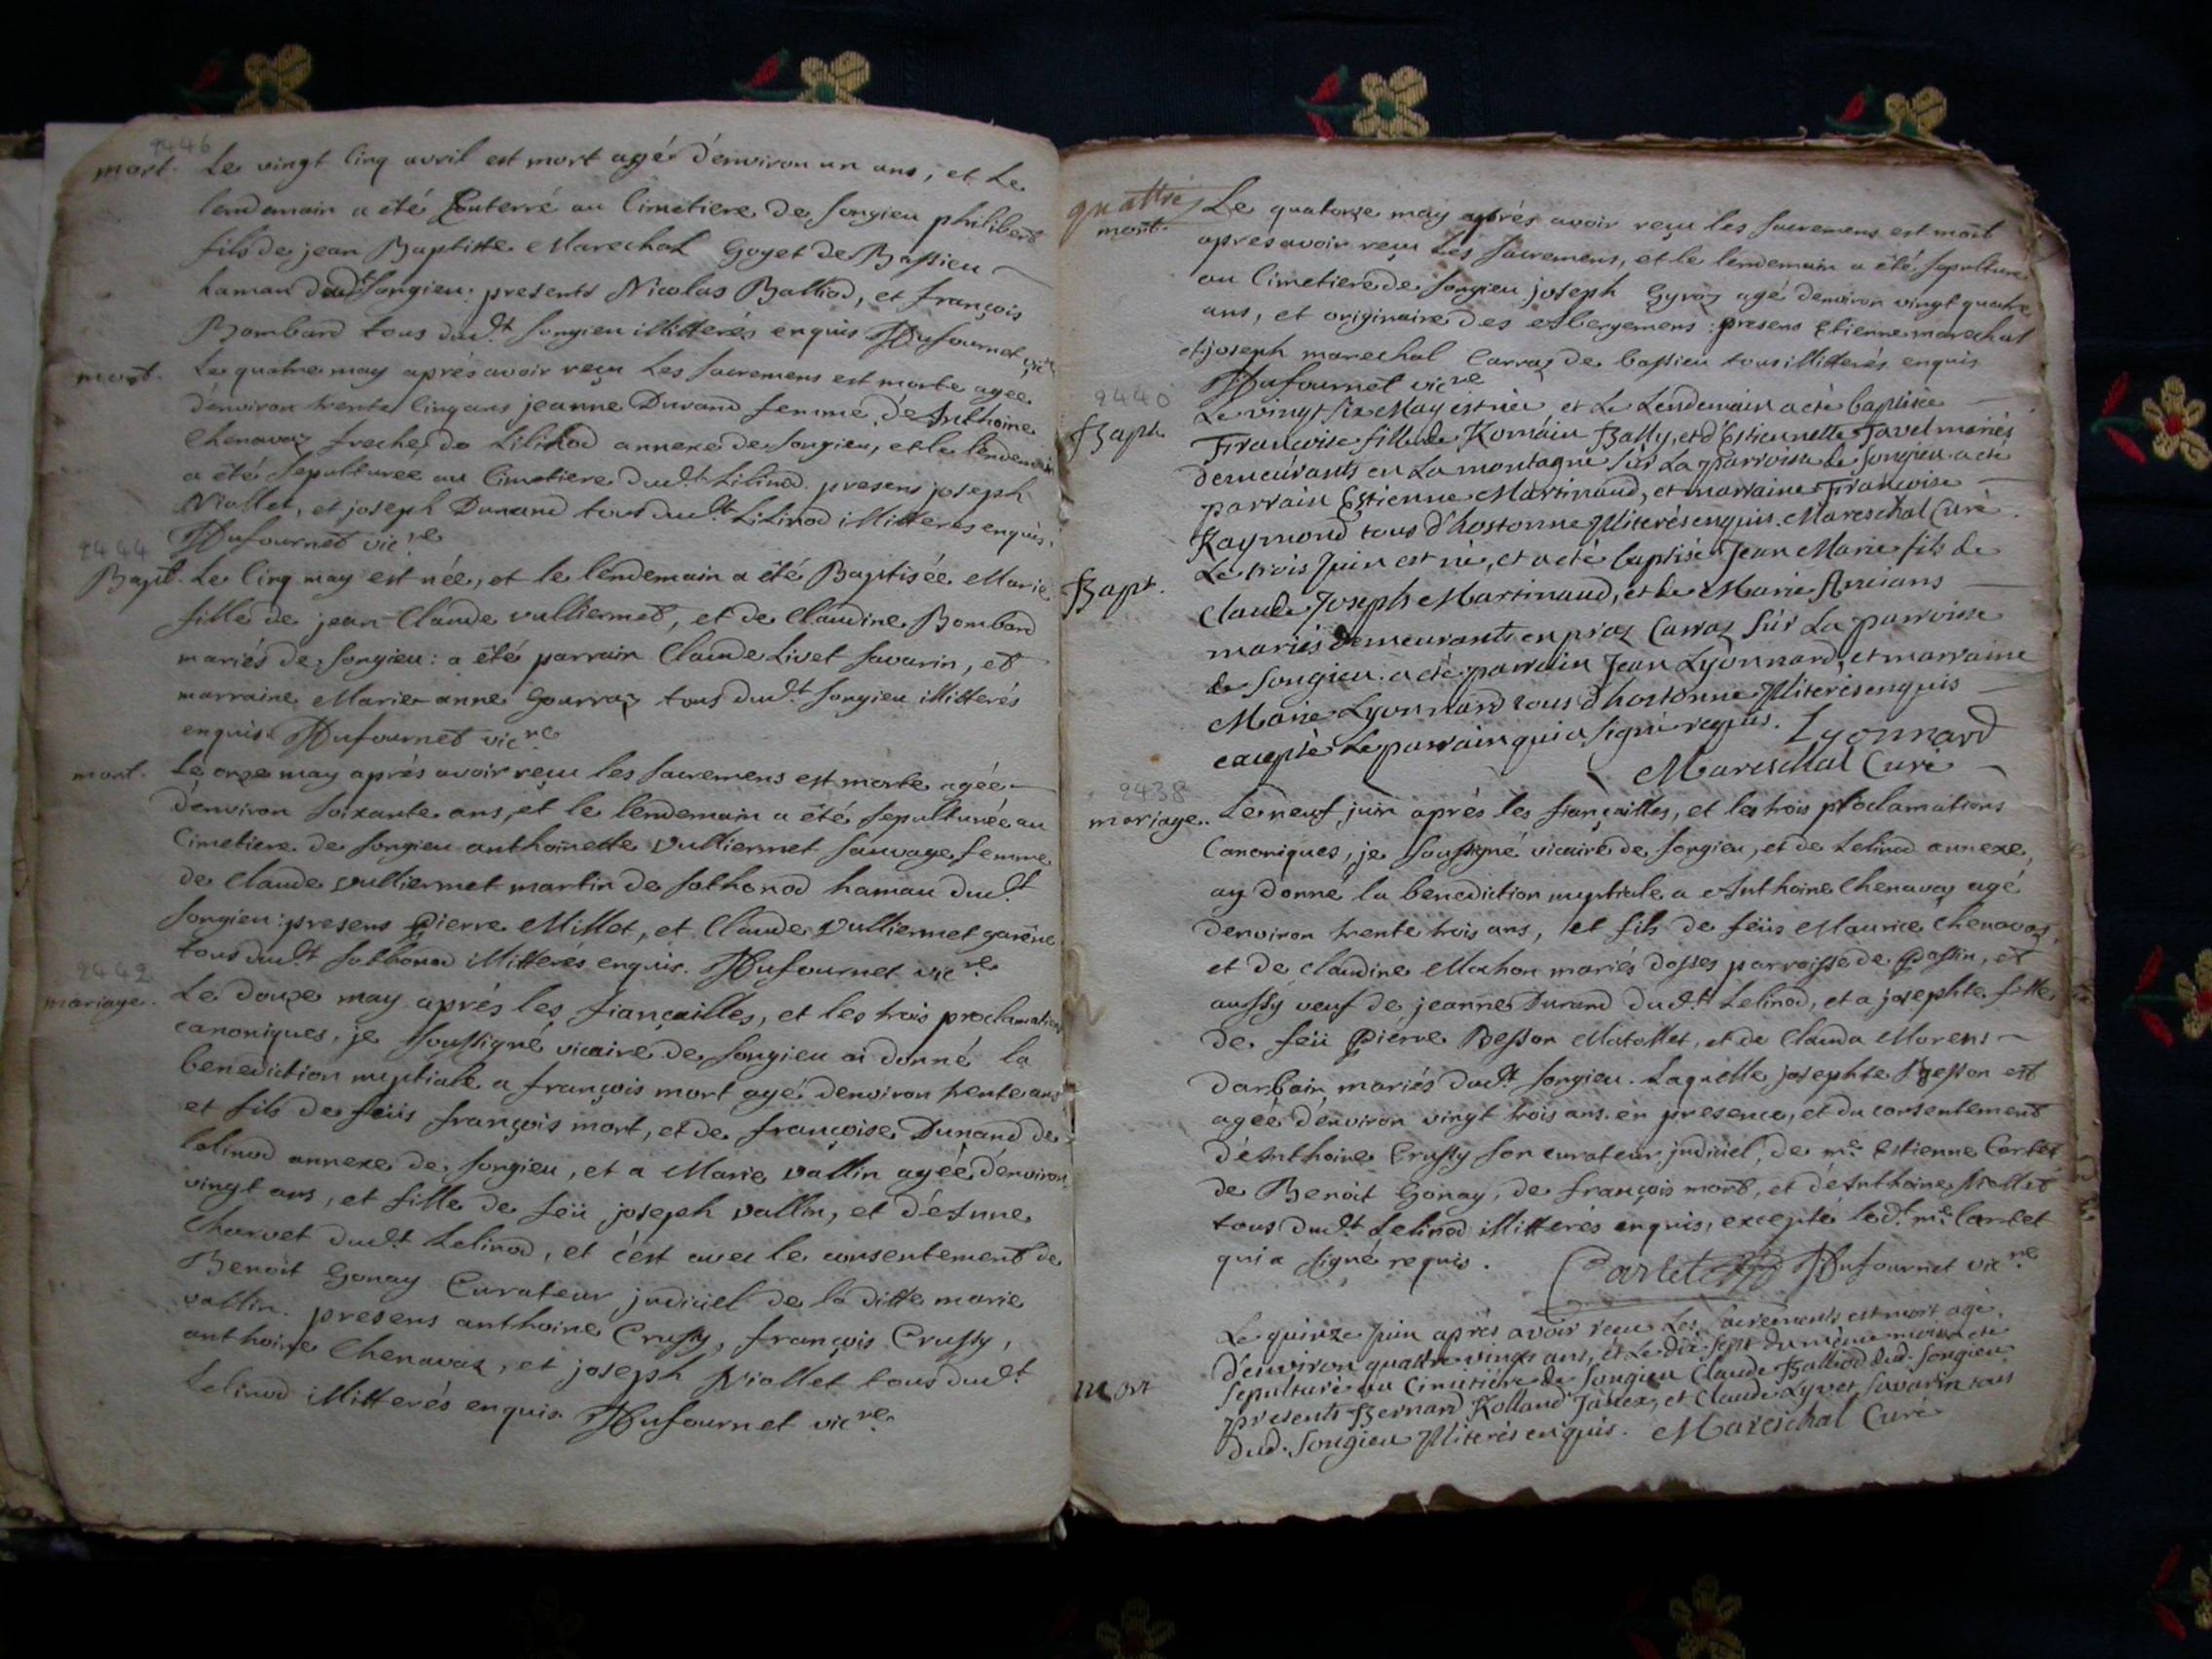 9446
mort. Le vingt cinq avril est mort agé d'environ un ans, et Le
lendemain a été Enterré au Cimetiere de songieu philibert
fils de jean Baptiste Marechal Goyet de Bassieu
hamau dudt songieu: presents Nicolas Balliod, et françois
Bombard tous dudt songieu illitterés enquis Dufournet vicre
mort. Le quatre may aprés avoir reçu Les sacremens est morte agee
d'environ trente cinq ans jeanne Durand femme d'Anthoine
Chenavaz freche de Lilinod annexe de songieu, et le lendemain
a été sepulturee au Cimetiere dudt Lilinod. presens joseph
Niollet, et joseph Dunand tous dudt Lilinod illitterés enquis.
Dufournet vicre
9444
Bapt. Le Cinq may est née, et le lendemain a été Baptisée Marie
fille de jean-Claude vulliermet, et de Claudine Bombard
mariés de songieu: a été parrain Claude Livet savarin, et
marraine Marie-anne Gourraz tous dudt songieu illitterés
enquis Dufournet vicre
mort. Le onze may aprés avoir reçu les sacremens est morte agée
d'environ soixante ans, et le lendemain a été sepulturée au
Cimetiere de songieu anthoinette Vulliermet sauvage femme
de Claude vulliermet martin de sothonod hamau dudt
songieu: presens pierre Millet, et Claude Vulliermet
tous dudt sothonod illitterés enquis. Dufournet vicre
9442
mariage. Le douze may aprés les fiançailles, et les trois proclamations
canoniques, je soussigné vicaire de songieu ai donné la
benediction nuptiale a françois mort agé d'environ trente ans
et fils de feüs françois mort, et de françoise Dunand de
Lelinod annexe de songieu, et a Marie vallin agée d'environ
vingt ans, et fille de feü joseph vallin, et d'Anne
Charvet dudt Lelinod, et c'est avec le consentement de
Benoit Gonay Curateur judiciel de la ditte marie
vallin. presens anthoine Crussy, françois Crussy,
anthoine Chenavaz, et joseph Niollet tous dudt
Lelinod illitterés enquis Dufournet vicre
quattre
mort. Le quatorze may aprés avoir reçu les sacremens est mort
apres avoir reçu Les sacremens, et le lendemain a été sepulturé
au Cimetiere de songieu joseph Gyroz agé d'environ vingt quatre
ans, et originaire des Abergemens: presens Etienne marechal
et joseph marechal Carraz de bassieu tous illitterés enquis
Dufournet vicre
9440
Bapt. Le vingt six May est née et Le Lendemain a été baptisée
Françoise fille de Romain Bally, et d'Estiennette Tavel mariés
demeurants en La montagne sur La parroisse de songieu. a été
parrain Estienne Martinaud, et marraine Françoise
Raymond tous d'hostonne Illiterés enquis. Mareschal Curé.
Bapt. Le trois Juin est né, et a été baptisé Jean Marie fils de
Claude Joseph Martinaud, et de Marie Ancians
mariés demeurants en praz Carraz sur La parroisse
de songieu. a été parrain Jean Lyonnard, et marraine
Marie Lyonnard tous d'hostonne Illiterés enquis
excepté Le parrain qui a signé requis. Lyonnard
Mareschal Curé
9438
mariage. Le neuf juin aprés les fiançailles, et les trois proclamations
Canoniques, je soussigné vicaire de songieu, et de Lelinod annexe,
ay donné la benediction nuptiale a Anthoine Chenavaz agé
d'environ trente trois ans, et fils de feüs Maurice Chenavaz,
et de Claudine Mochon mariés dosses parroisse de Passin, et
aussy veuf de jeanne Durand dudt Lelinod, et a josephte fille
de feü pierre Besson Matollet, et de Clauda Morens
darbain mariés dudt songieu. Laquelle josephte Besson est
agée d'environ vingt trois ans. en presence, et du consentement
d'Anthoine Crussy son curateur judiciel, de me Estienne Cartet
de Benoit Gonay, de françois mort, et d'Anthoine Niollet
tous dudt Lelinod illitterés enquis, excepté ledt me Cartet
qui a signé requis. Cartet Dufournet vicre
Le quinze Juin aprés avoir reçu Les sacrements est mort agé
d'environ quattre vingts ans, et Le dix sept du même mois a été
mort sepulturé au Cimitiere de songieu Claude Balliod dud. songieu
presents Bernard Rolland Janex, et Claude Lyvet savarin tous
dud. songieu Illiterés enquis. Mareschal Curé